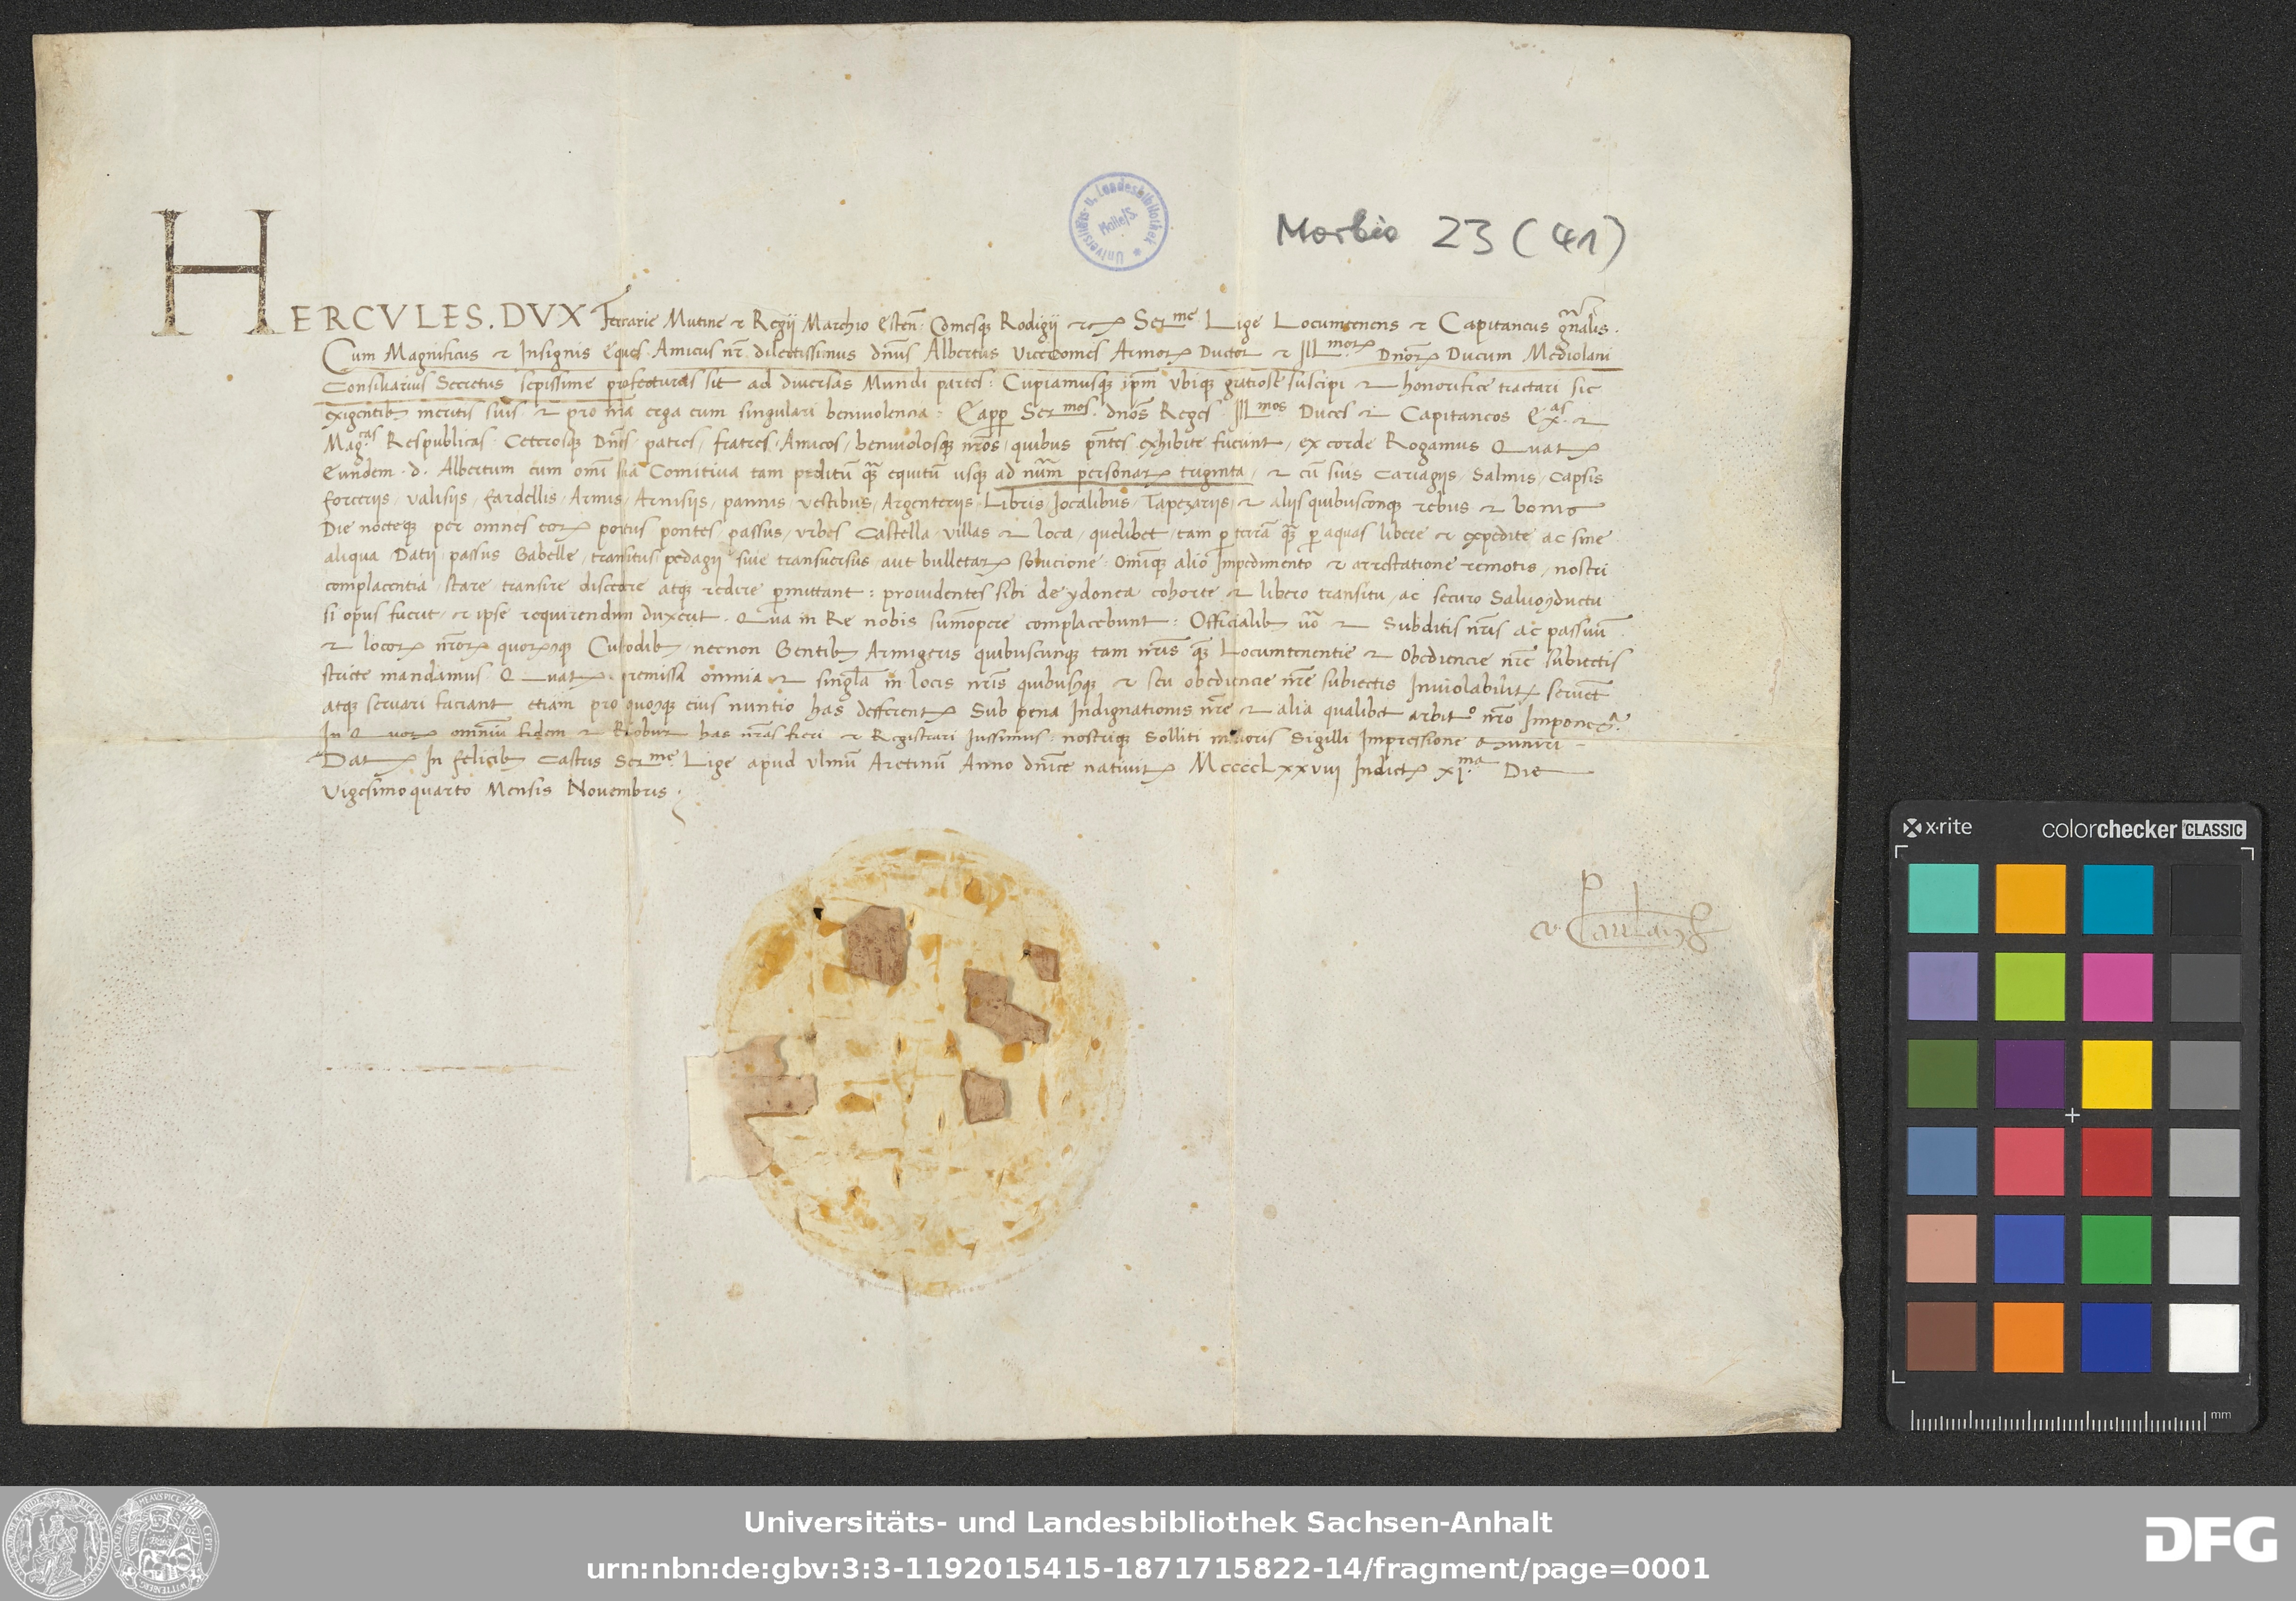 Universitäts- u. Landesbibliothek Halle/S.
Morbio 23 (41)
HERCVLES. DVX Ferrarie Mutine & Regij Marchio Esten̄. Comesqꝫ Rodigij &cꝫ Ser^me Lige Locumtenens & Capitaneus gñalis.
Cum Magnificus & Insignis Eques Amicus nr̄ dilectissimus dn̄us Albertus Vicecomes Armoꝝ Ductor & Ill^moꝝ Dnoꝝ Ducum Mediolani
Consiliarius Secretus sepissime profecturus sit ad diversas Mundi partes: Cupiamusqꝫ ipm̄ ubiqꝫ gratiose suscipi & honorifice tractari sic
exigentibꝫ meritis suis & pro nr̄a erga eum singulari benivolencia: Ser^mos. dnōs Reges Ill^mos Duces & Capitaneos Ex^as &
Mag^cas Respublicas Ceterosqꝫ Dn̄os patres / fratres Amicos / benivolosqꝫ nr̄os / quibus pn̄tes exhibite fuerint / ex corde Rogamus Quatꝫ
Eundem d. Albertum cum omī sua Comitiva tam peditū quā equitū usqꝫ ad num̄ personaꝝ triginta / & cū suis Cariagijs / Salmis / Capsis
forcerijs / valisijs / fardellis / Armis / Arnisijs / pannis / vestibus / Argenterijs / Libris Jocalibus / Tapezarijs / & alijs quibuscunqꝫ rebus & bonis
Die nocteqꝫ per omnes eoꝝ portus pontes / passus / urbes Castella / villas & loca / quelibet / tam p terrā quā p aquas libere & expedite ac sine
aliqua Datij / passus Gabelle / transitus / pedagij sive transversus / aut bulletaꝝ solucione: Omīqꝫ alio Impedimento & arrestatione remotis / nostri
complacentia / stare transire discedere atqꝫ redire pmittant: providentes sibi de ydonea cohorte & libero transitu / ac securo Salvoꝯductu
si opus fuerit / & ipse requirendum duxerit. Qua in Re nobis sum̄opere complacebunt: Officialibꝫ & Subditis nr̄is ac passuū
& locoꝝ nr̄oꝝ quoꝝcqꝫ Custodibꝫ / necnon Gentibꝫ Armigeris quibuscunqꝫ tam nr̄is quā Locumtenentie & Obediencie nr̄e subiectis
stricte mandamus Quatꝫ premissa omnia & singl̄a in locis nr̄is quibuscqꝫ & seu obediencie nr̄e subiectis Inviolabilitꝫ servent
atqꝫ servari faciant etiam pro quocqꝫ eius nuntio has defferentꝫ Sub pena Indignationis nr̄e & alia qualibet arbit^o nr̄o Imponenda.
In Quoꝝ omnium fidem & Robur has nr̄as fieri & Registrari Iussimus: nostriqꝫ Solliti maioris Sigilli Impressione muniri
Datꝫ In felicibꝫ Castris Ser^me Lige apud Ulmū Aretinū Anno dn̄ice nativitꝫ MCCCCLxxviij Indictꝫ xi^ma Die
Vigesimoquarto Mensis Novembris.
x-rite
colorchecker CLASSIC
mm
Universitäts- und Landesbibliothek Sachsen-Anhalt
urn:nbn:de:gbv:3:3-1192015415-1871715822-14/fragment/page=0001
DFG